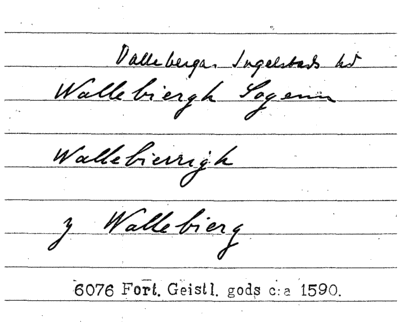 Valleberga. Ingelstads hd
Wallebiergh Sogenn
Wallebierrigh
y Wallebierg
6076 Fort. Geistl. gods c:a 1590.